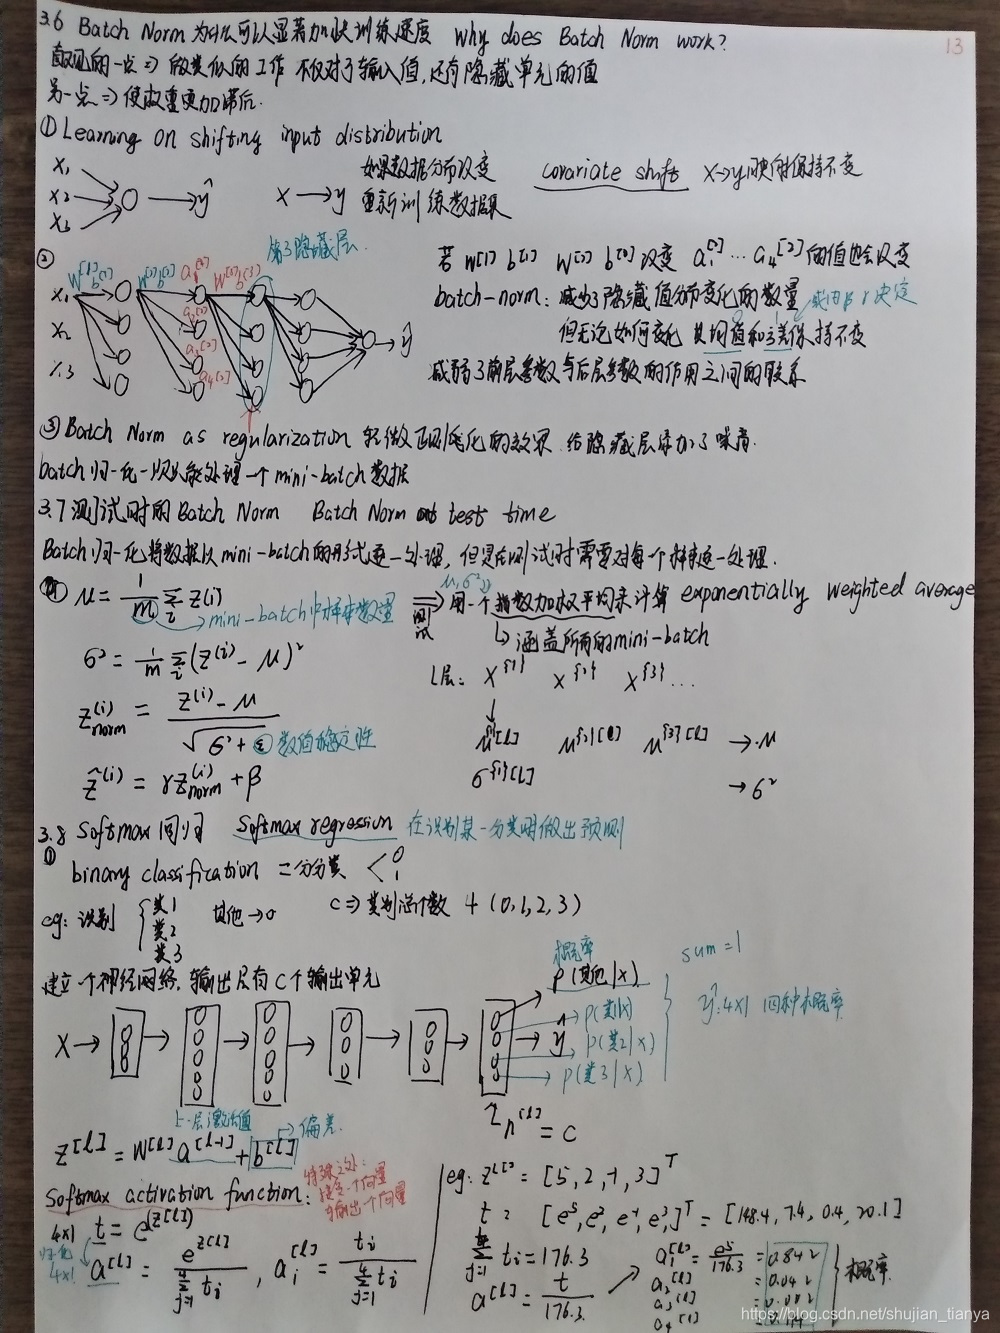 13
3.6 Batch Norm 为什么可以显著加快训练速度 Why does Batch Norm work?
直观的一点 => 做类似的工作 不仅对于输入值,还有隐藏单元的值
另一点 => 使权重更加滞后.
① Learning on shifting input distribution
x₁ x₂ x₃ → ŷ
x → y
如果数据分布改变
重新训练数据集
covariate shift x→y映射保持不变
②
第3隐藏层
W[1] b[1] W[2] b[2] a₁[2] W[3] b[3]
a₂[2]
a₃[2]
a₄[2]
x₁
x₂
x₃
ŷ
若 W[1] b[1] W[2] b[2] 改变 a₁[2] … a₄[2] 的值也会改变
batch-norm: 减少了隐藏值分布变化的数量 或由β γ决定
但无论如何变化 其均值和方差保持不变
减弱了前层参数与后层参数的作用之间的联系
③ Batch Norm as regularization 轻微正则化的效果 给隐藏层添加了噪声.
batch归一化一次只能处理一个mini-batch数据
3.7 测试时的 Batch Norm Batch Norm at test time
Batch归一化将数据以mini-batch的形式逐一处理, 但是在测试时需要对每个样本逐一处理.
① μ = 1/m Σi z(i)
mini-batch中样本数量
σ² = 1/m Σi (z(i) - μ)²
z(i)norm = (z(i) - μ) / √(σ² + ε)
② 数值稳定性
z̃(i) = γ z(i)norm + β
测试 μ, σ² 用一个指数加权平均来计算 exponentially weighted average
↳ 涵盖所有的mini-batch
L层: X{1} X{2} X{3} …
μ{1}[l] μ{2}[l] μ{3}[l] → μ
σ{1}[l] → σ²
3.8 Softmax 回归 Softmax regression 在识别某一分类时做出预测
① binary classification 二分分类 < 0 1
eg: 识别 { 类1 类2 类3 其他→0
C => 类别总个数 4 (0,1,2,3)
建立一个神经网络, 输出层有C个输出单元
概率
P(其他|x)
P(类1|x)
P(类2|x)
P(类3|x)
sum = 1
ŷ: 4×1 四种概率
X → ŷ
n[l] = C
上一层激活值
偏差
z[l] = W[l] a[l-1] + b[l]
Softmax activation function:
特殊之处:
输出一个向量
4×1 t = e(z[l])
归一化
4×1 a[l] = e^z[l] / Σ⁴j=1 ti , ai[l] = ti / Σ⁴j=1 ti
eg: z[l] = [5, 2, -1, 3]ᵀ
t = [e⁵, e², e⁻¹, e³]ᵀ = [148.4, 7.4, 0.4, 20.1]
Σ⁴j=1 ti = 176.3
a[l] = t / 176.3
a₁[l] = e⁵/176.3 = 0.842
a₂[l] = 0.042
a₃[l] = 0.002
a₄[l]
概率.
https://blog.csdn.net/shujian_tianya